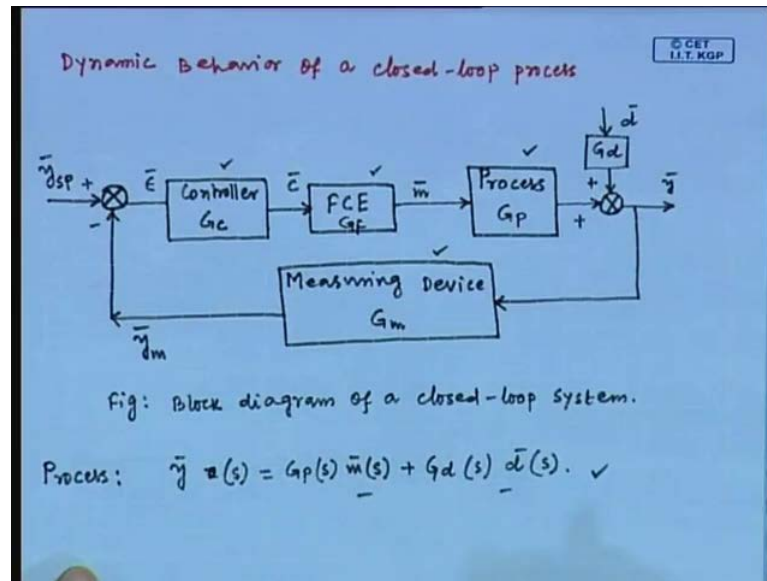 © CET
I.I.T. KGP
Dynamic Behavior of a closed-loop process
d̄
Gd
ȳsp + ε̄ Controller c̄ FCE m̄ Process + ȳ
- Gc GF Gp +
Measuring Device
Gm
ȳm
Fig: Block diagram of a closed-loop system.
Process: ȳ (s) = Gp(s) m̄(s) + Gd(s) d̄(s).